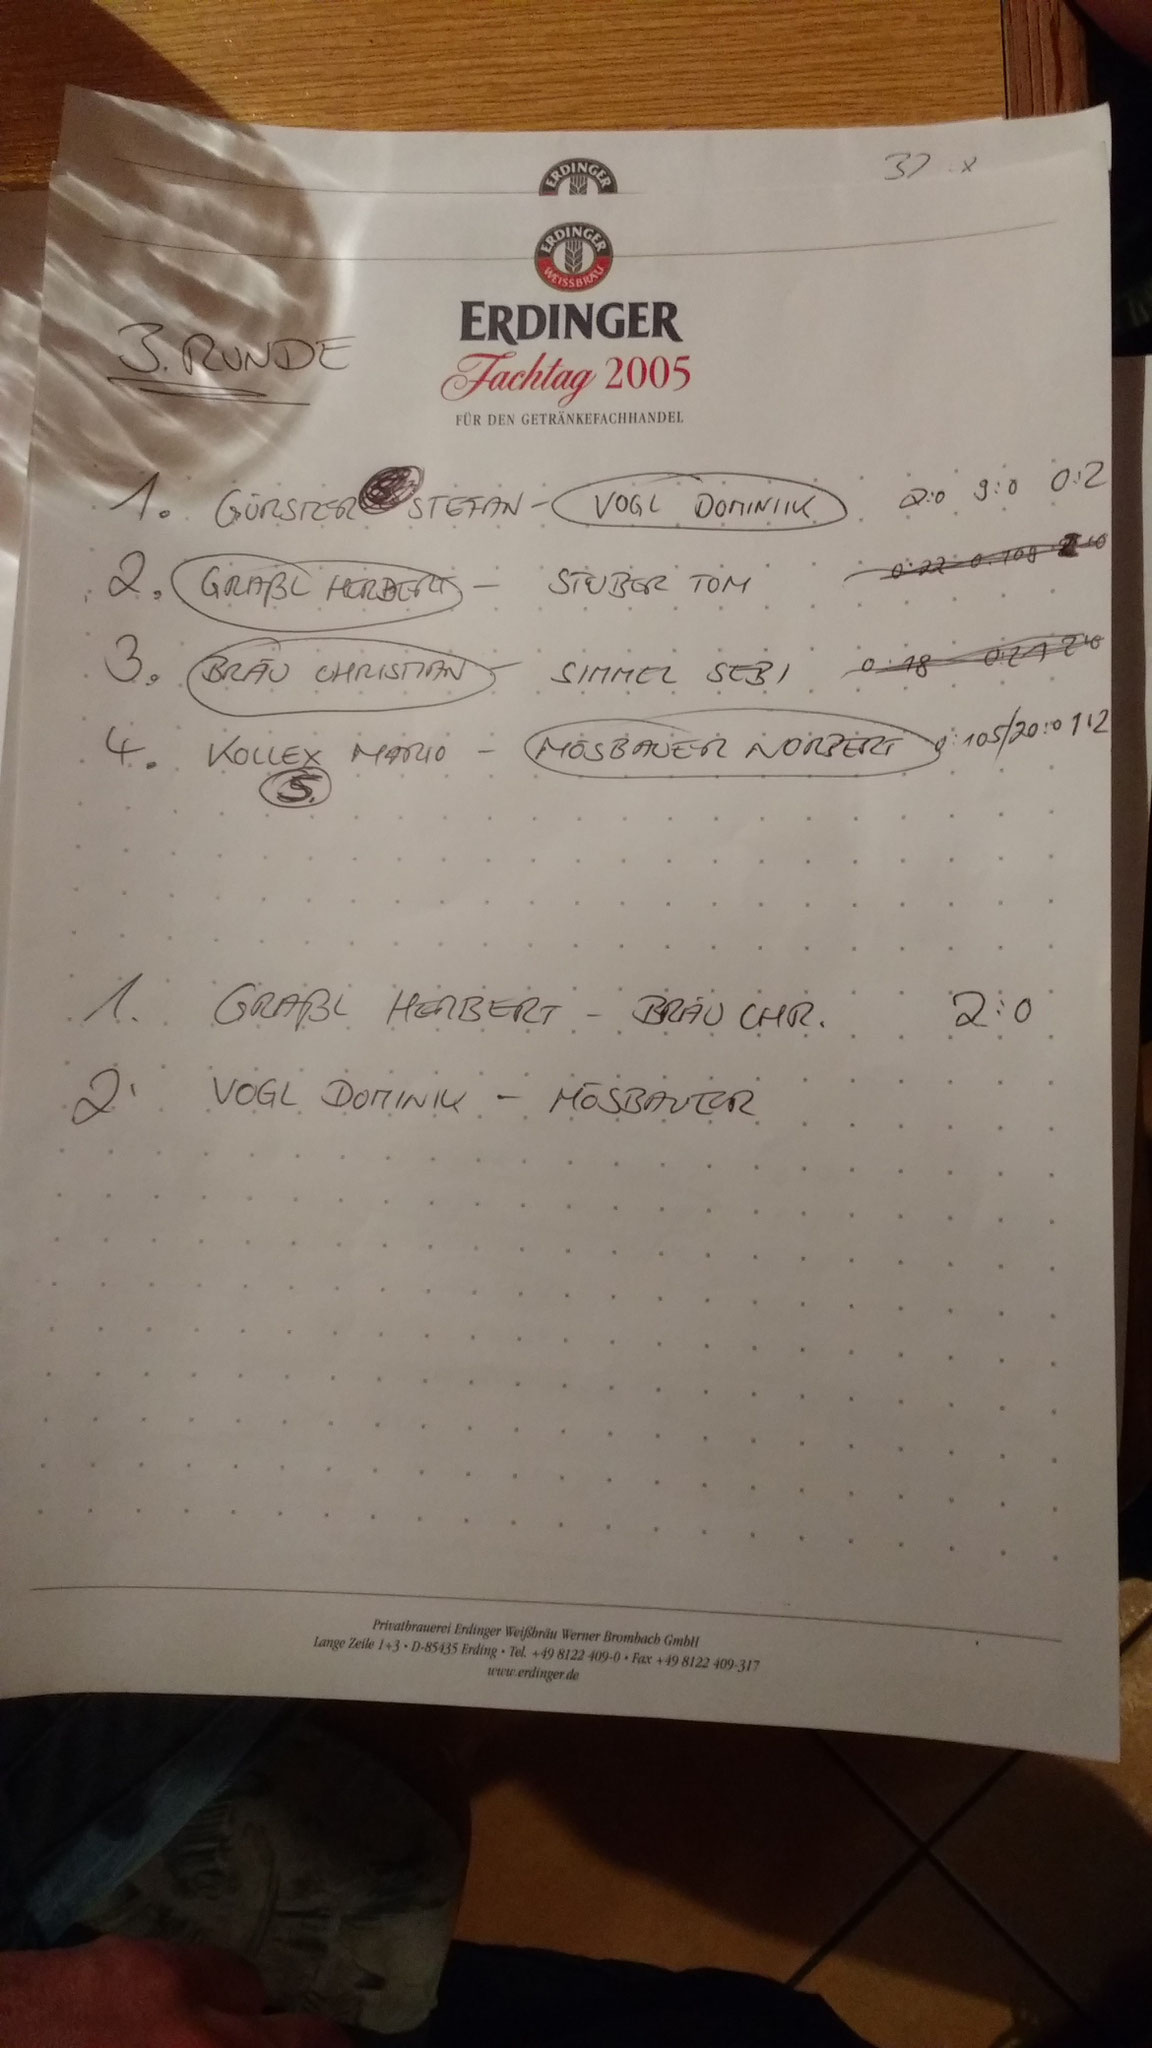 37 x
ERDINGER
ERDINGER
WEISSBRÄU
ERDINGER
Fachtag 2005
FÜR DEN GETRÄNKEFACHHANDEL
3. RUNDE
1. GÜRSTER STEFAN - VOGL DOMINIK 2:0 9:0 0:2
2. GRAßL HERBERT - STUBER TOM 0:22 0:108
3. BRÄU CHRISTIAN - SIMMEL SEBI 0:18 0:21 2:0
4. KOLLEX MARIO - MÖSBAUER NORBERT 0:105/20:0 1:2
5.
1. GRAßL HERBERT - BRÄU CHR. 2:0
2. VOGL DOMINIK - MÖSBAUER
Privatbrauerei Erdinger Weißbräu Werner Brombach GmbH
Lange Zeile 1+3 • D-85435 Erding • Tel. +49 8122 409-0 • Fax +49 8122 409-317
www.erdinger.de